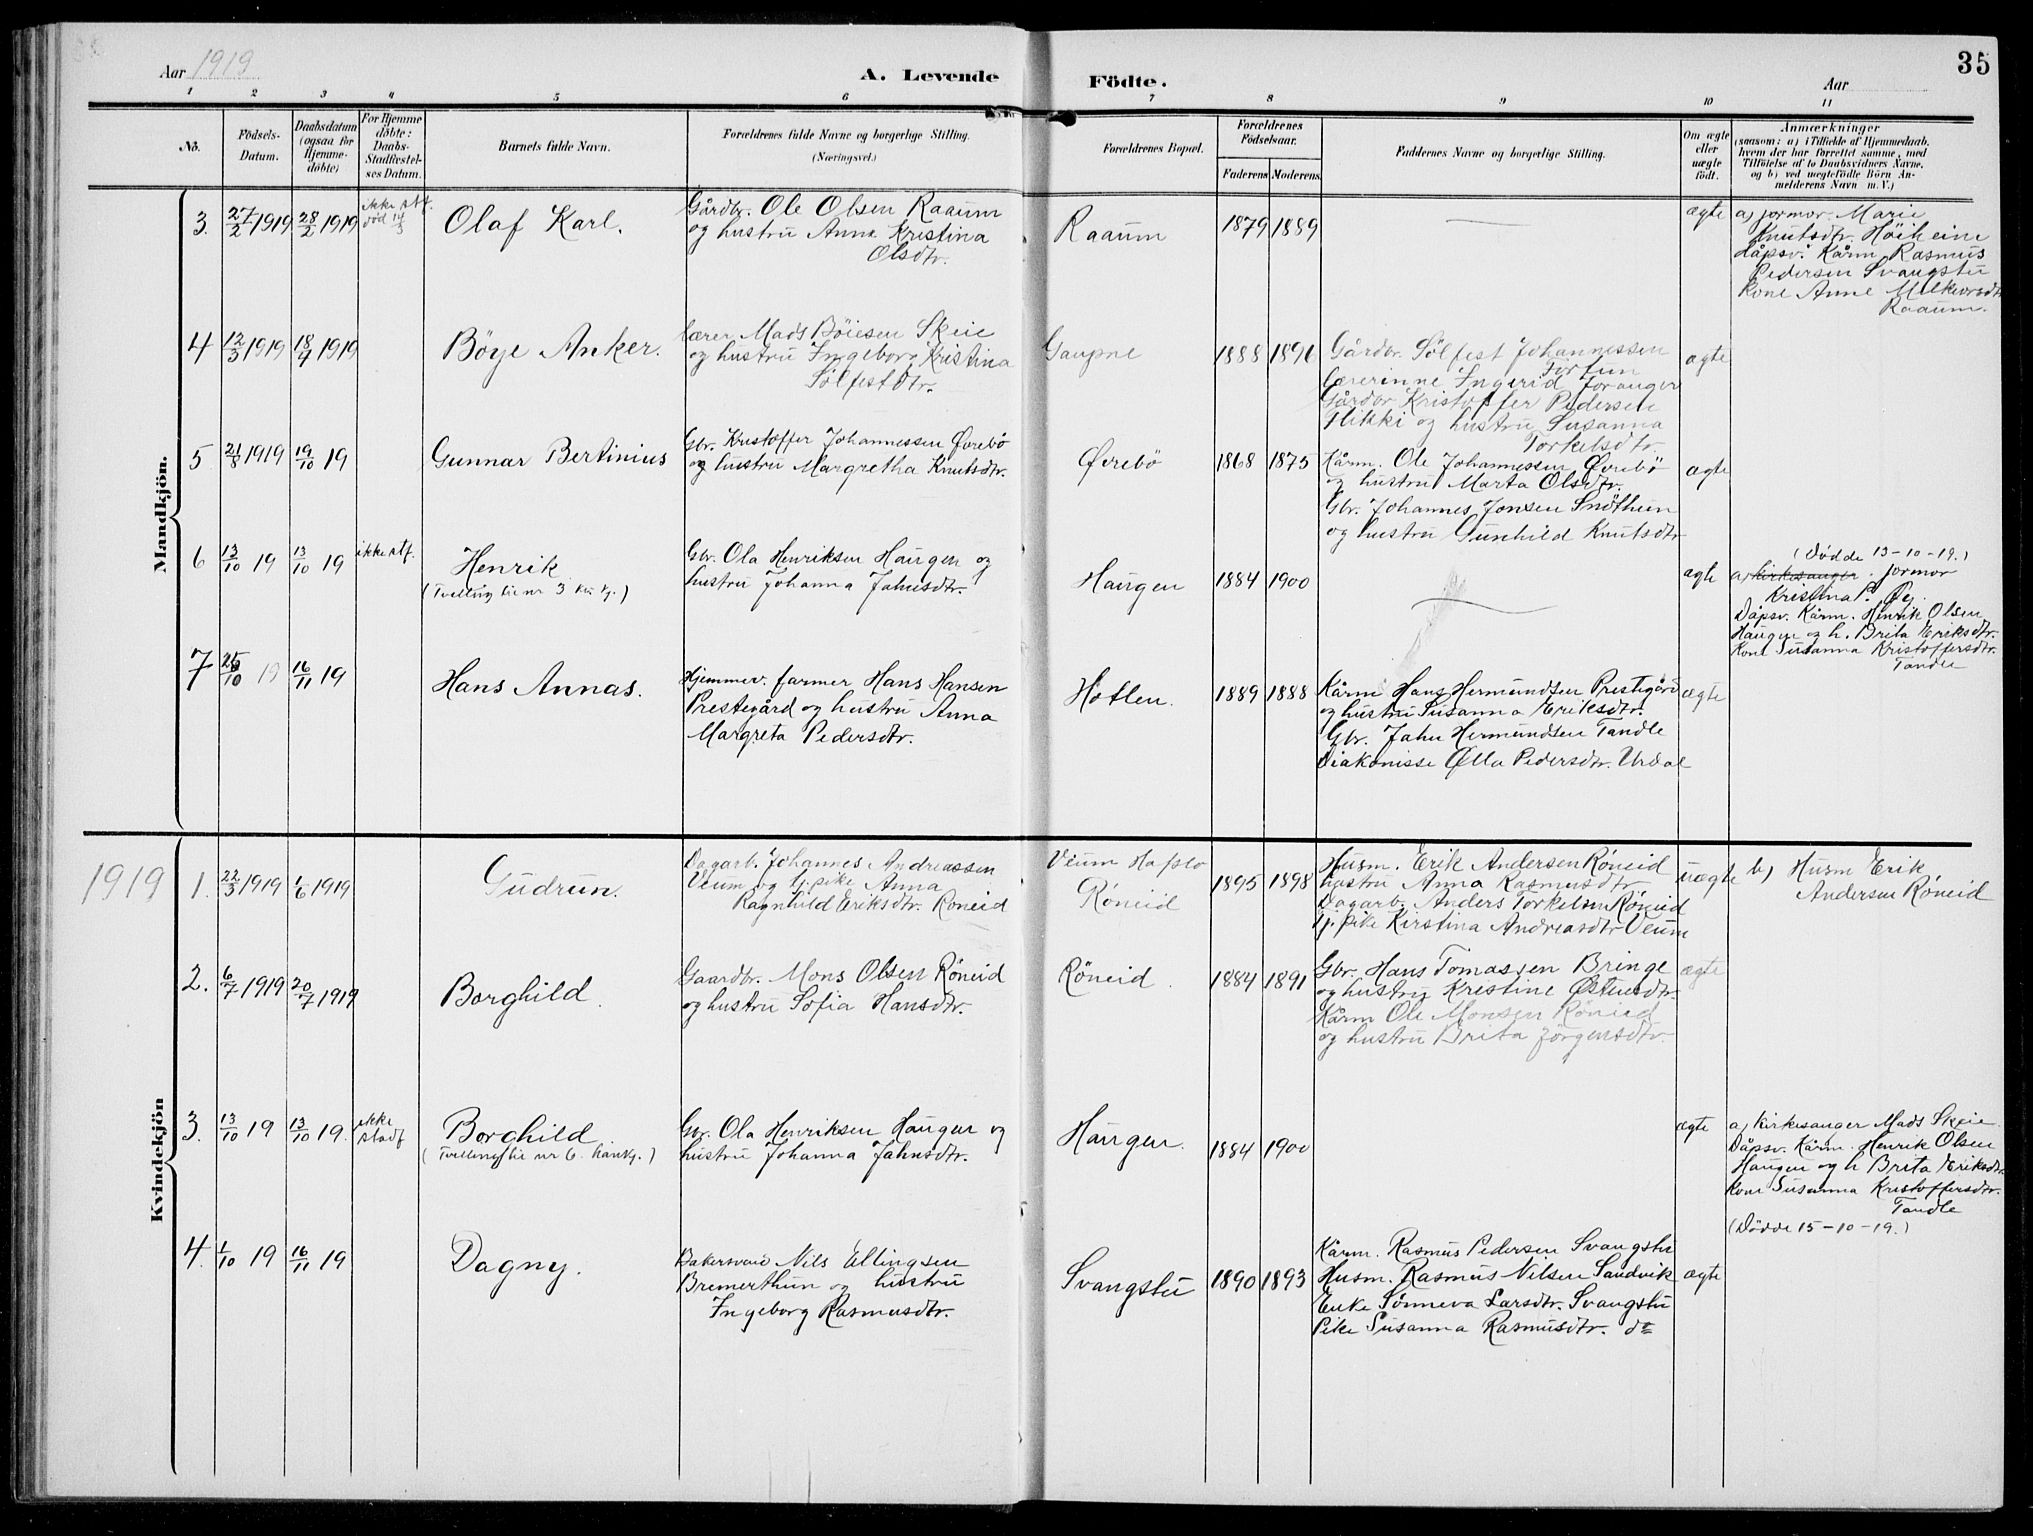 Aar 1919
A. Levende
Födte.
Aar
35
1 2 3 4 5 6 7 8 9 10 11
No.
Födsels-
Datum.
Daabsdatum
(ogsaa for
Hjemme-
döbte)
For Hjemme
döbte:
Daabs-
Stadfæstel-
ses Datum.
Barnets fulde Navn.
Forældrenes fulde Navne og borgerlige Stilling.
(Næringsvei.)
Forældrenes Bopæl.
Forældrenes
Födselsaar.
Faderens Moderens
Faddernes Navne og borgerlige Stilling.
Om ægte
eller
uægte
födt.
Anmærkninger
(saasom: a) i Tilfælde af Hjemmedaab,
hvem der har forrettet samme, med
Tilföielse af to Daabsvidners Navne,
og b) ved uægtefödte Börn An-
melderens Navn m. V.)
Mandkjön.
3. 27/2 1919 28/2 1919
ikke stf.
död 14/3
Olaf Karl.
Gårdbr. Ole Olsen Raaum
og hustru Anna Kristina
Olsdtr.
Raaum
1879 1889
ægte
a) jormor Marie
Knutsdtr. Höiheim
dåpsv. Kårm. Rasmus
Pedersen Svangstu
Kone Anne Melkiorsdtr.
Raaum.
4 12/3 1919 18/4 1919
Böye Anker.
Lærer Mads Böiesen Skeie
og hustru Ingeborg Kristina
Sölfestdtr.
Gaupne
1888 1896
Gårdbr. Sölfest Johannessen
Fortun
Lærerinne Ingerid Joranger
Gårdbr Kristoffer Pedersen
Hikki og hustru Susanna
Torkelsdtr.
ægte
5. 21/8 1919 19/10 19
Gunnar Bertinius
Gbr. Kristoffer Johannessen Øvrebö
og hustru Margretha Knutsdtr.
Øvrebö
1868 1875
Kårm. Ole Johannessen Øvrebö
og hustru Marta Olsdtr.
Gbr. Johannes Jonsen Snöthun
og hustru Gunhild Knutsdtr
ægte
6 13/10 19 13/10 19
ikke stf.
Henrik
(Tvilling til nr 3 kv. kj.)
Gbr. Ola Henriksen Haugen og
hustru Johanna Jahnsdtr.
Haugen
1884 1900
ægte
(Dödde 13-10-19.)
a) kirkesanger. jormor
Kristina P. Øy.
Dåpsv. Kårm. Henrik Olsen
Haugen og h. Brita Eriksdtr.
Kone Susanna Kristoffersdtr.
Tandle
7 /10 19 16/11 19
Hans Annas.
Hjemmev. farmer Hans Hansen
Prestegård og hustru Anna
Margreta Pedersdtr.
Hotlen.
1889 1888
Kårm Hans Hermundsen Prestegård
og hustru Susanna Eriksdtr.
Gbr. Jahn Hermundsen Tandle
Diakonisse Ølla Pedersdtr. Urdal
ægte
Kvindekjön
1919
1. 22/3 1919 1/6 1919
Gudrun.
Dagarb. Johannes Andreassen
Veum og tj. pike Anna
Ragnhild Eriksdtr. Röneid
Veum Hafslo
Röneid
1895 1898
Husm. Erik Andersen Röneid
hustru Anna Rasmusdtr
Dagarb. Anders Torkelsen Röneid
tj. pike Kirstina Andreasdtr Veum
uægte
b) Husm Erik
Andersen Röneid
2. 6/7 1919 20/7 1919
Borghild.
Gaardbr. Mons Olsen Röneid
og hustru Sofia Hansdtr.
Röneid.
1884 1891
Gbr. Hans Tomassen Bringe
og hustru Kristine Østensdtr.
Kårm Ole Monsen Röneid
og hustru Brita Jörgensdtr.
ægte
3. 13/10 19 13/10 19.
ikke
stadf
Borghild
(Tvilling til nr 6. hankj.)
Gbr. Ola Henriksen Haugen og
hustru Johanna Jahnsdtr.
Haugen.
1884 1900
ægte
a) Kirkesanger Mads Skeie
Dåpsv. Kårm. Henrik Olsen
Haugen og h Brita Eriksdtr.
Kone Susanna Kristoffersdtr.
Tandle
(Dödde 15-10-19.)
4. 1/10 19 16/11 19
Dagny.
Bakersvend Nils Ellingsen
Bremerthun og hustru
Ingeborg Rasmusdtr.
Svangstu
1890 1893
Kårm. Rasmus Pedersen Svangstu
Husm. Rasmus Nilsen Sandvik
Enke Sönneva Larsdtr. Svangstu
Pike Susanna Rasmusdtr. do
ægte